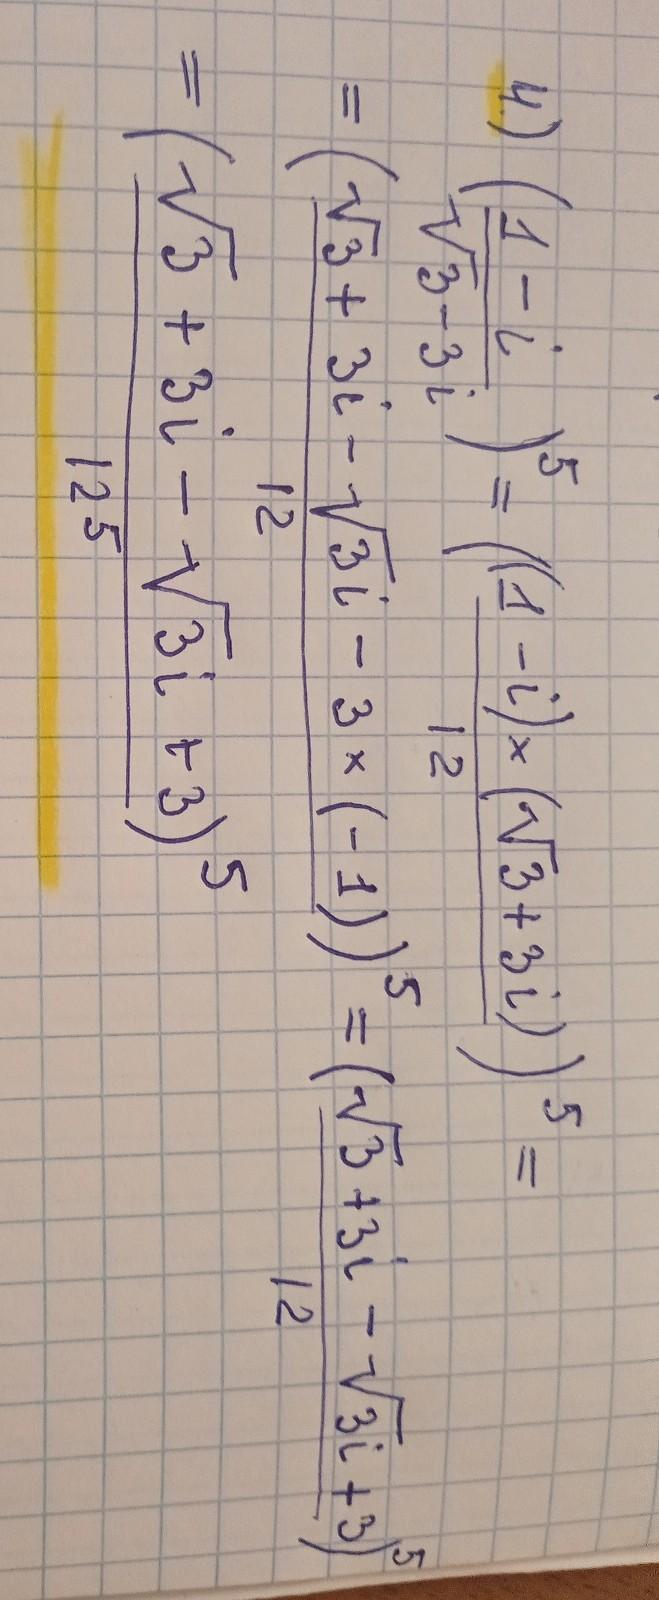 4.) (1-i / √3-3i)^5 = ((1-i)×(√3+3i) / 12)^5 =
= (√3+3i-√3i-3×(-1) / 12)^5 = (√3+3i-√3i+3 / 12)^5
= (√3+3i-√3i+3)^5 / 12^5